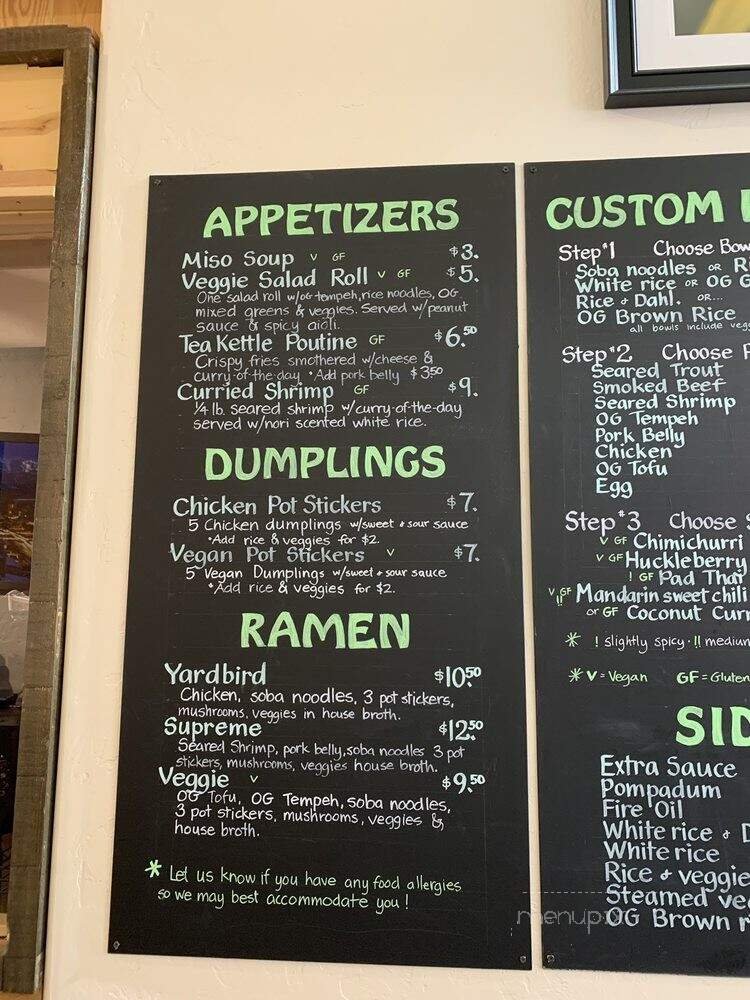 APPETIZERS
Miso Soup V GF $3.
Veggie Salad Roll V GF $5.
One salad roll w/OG tempeh, rice noodles, OG
mixed greens & veggies. Served w/peanut
sauce & spicy aioli.
Tea Kettle Poutine GF $6.50
Crispy fries smothered w/cheese &
curry-of-the-day *Add pork belly $3.50
Curried Shrimp GF $9.
1/4 lb. seared shrimp w/curry-of-the-day
served w/nori scented white rice.
DUMPLINGS
Chicken Pot Stickers $7.
5 Chicken dumplings w/sweet & sour sauce
*Add rice & veggies for $2.
Vegan Pot Stickers V $7.
5 Vegan Dumplings w/sweet & sour sauce
*Add rice & veggies for $2.
RAMEN
Yardbird $10.50
Chicken, soba noodles, 3 pot stickers,
mushrooms, veggies in house broth.
Supreme $12.50
Seared Shrimp, pork belly, soba noodles 3 pot
stickers, mushrooms, veggies house broth.
Veggie V $9.50
OG Tofu, OG Tempeh, soba noodles,
3 pot stickers, mushrooms, veggies &
house broth.
* Let us know if you have any food allergies
so we may best accommodate you!
CUSTOM
Step #1 Choose Bow
Soba noodles OR Ri
White rice OR OG G
Rice & Dahl. OR...
OG Brown Rice
all bowls include vegg
Step #2 Choose P
Seared Trout
Smoked Beef
Seared Shrimp
OG Tempeh
Pork Belly
Chicken
OG Tofu
Egg
Step #3 Choose S
V GF Chimichurri
V GF Huckleberry
! GF Pad Thai
V GF !! Mandarin sweet chili
or GF Coconut Curr
* ! slightly spicy · !! medium
* V = Vegan GF = Gluten
SID
Extra Sauce
Pompadum
Fire Oil
White rice & D
White rice
Rice & veggie
Steamed veg
OG Brown r
menupix